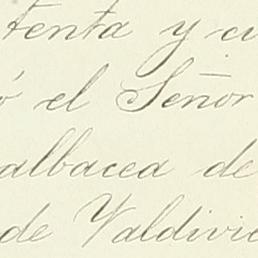 tenta y cu
ó el Señor
albacea de
de Valdivie